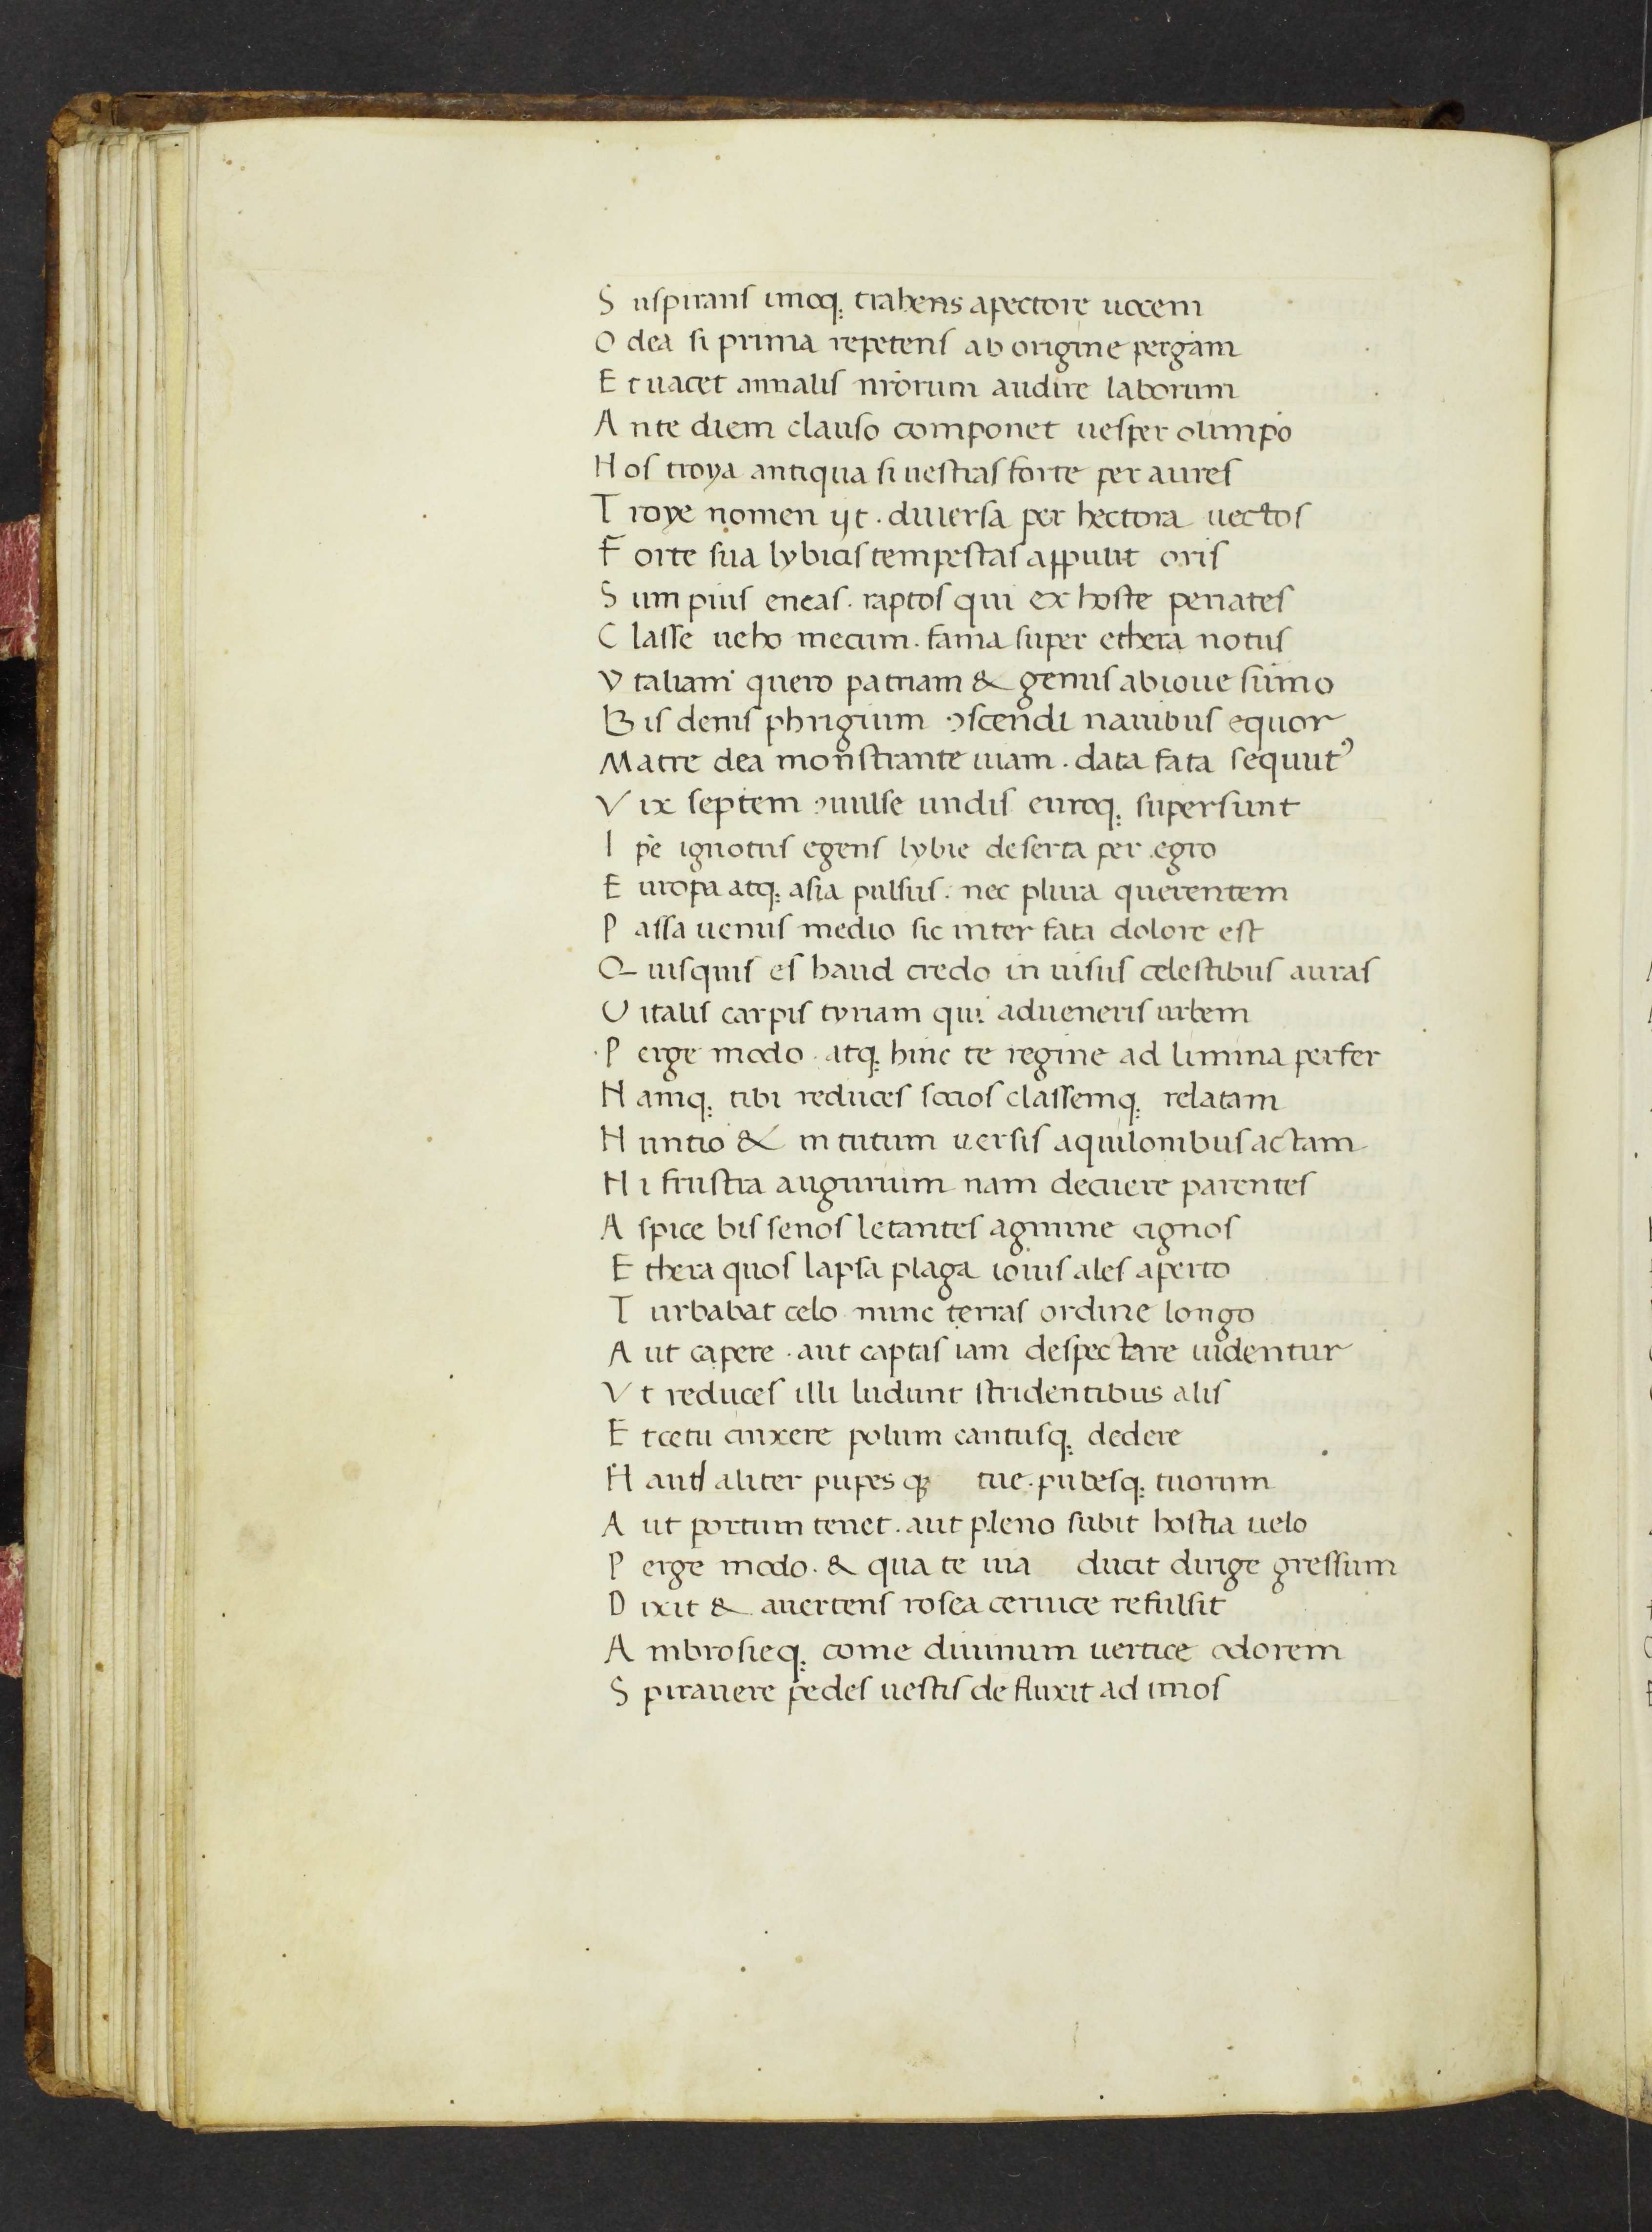 Suspirans imoq; trahens apectore uocem
O dea si prima repetens ab origine pergam
Et uacet annalis nr̄orum audire laborum
Ante diem clauso componet uesper olimpo
Nos troya antiqua si uestras forte per aures
Troye nomen ijt · diuersa per hectora uectos
Forte sua lybicis tempestas appulit oris
Sum pius eneas · raptos qui ex hoste penates
Classe ueho mecum · fama super ethera notus
Ytaliam quero patriam & genus abioue sūmo
Bis denis phrigium ɔscendi nauibus equor
Matre dea monstrante uiam · data fata sequut᾿
Vix septem ɔuulse undis euroq; supersunt
Ip̄e ignotus egens lybie deserta per egro
Europa atq; asia pulsus · nec plura querentem
Passa uenus medio sic inter fata dolore est
Quisquis es haud credo in uisus celestibus auras
Vitalis carpis tyriam qui adueneris urbem
Perge modo · atq; hinc te regine ad limina perfer
Namq; tibi reduces socios classemq; relatam
Nuntio & in tutum uersis aquilonibus actam
Ni frustra augurium nam decuere parentes
Aspice bis senos letantes agmine cignos
Ethera quos lapsa plaga iouis ales aperto
Turbabat celo nunc terras ordine longo
Aut capere · aut captas iam despectare uidentur
Vt reduces illi ludunt stridentibus alis
Et cetu cinxere polum cantusq; dedere
Haud aliter pupes q; tue · pubesq; tuorum
Aut portum tenet · aut pleno subit hostia uelo
Perge modo · & qua te uia ducit dirige gressum
Dixit & auertens rosea ceruice refulsit
Ambrosieq; come diuinum uertice odorem
Spirauere pedes uestis defluxit ad imos